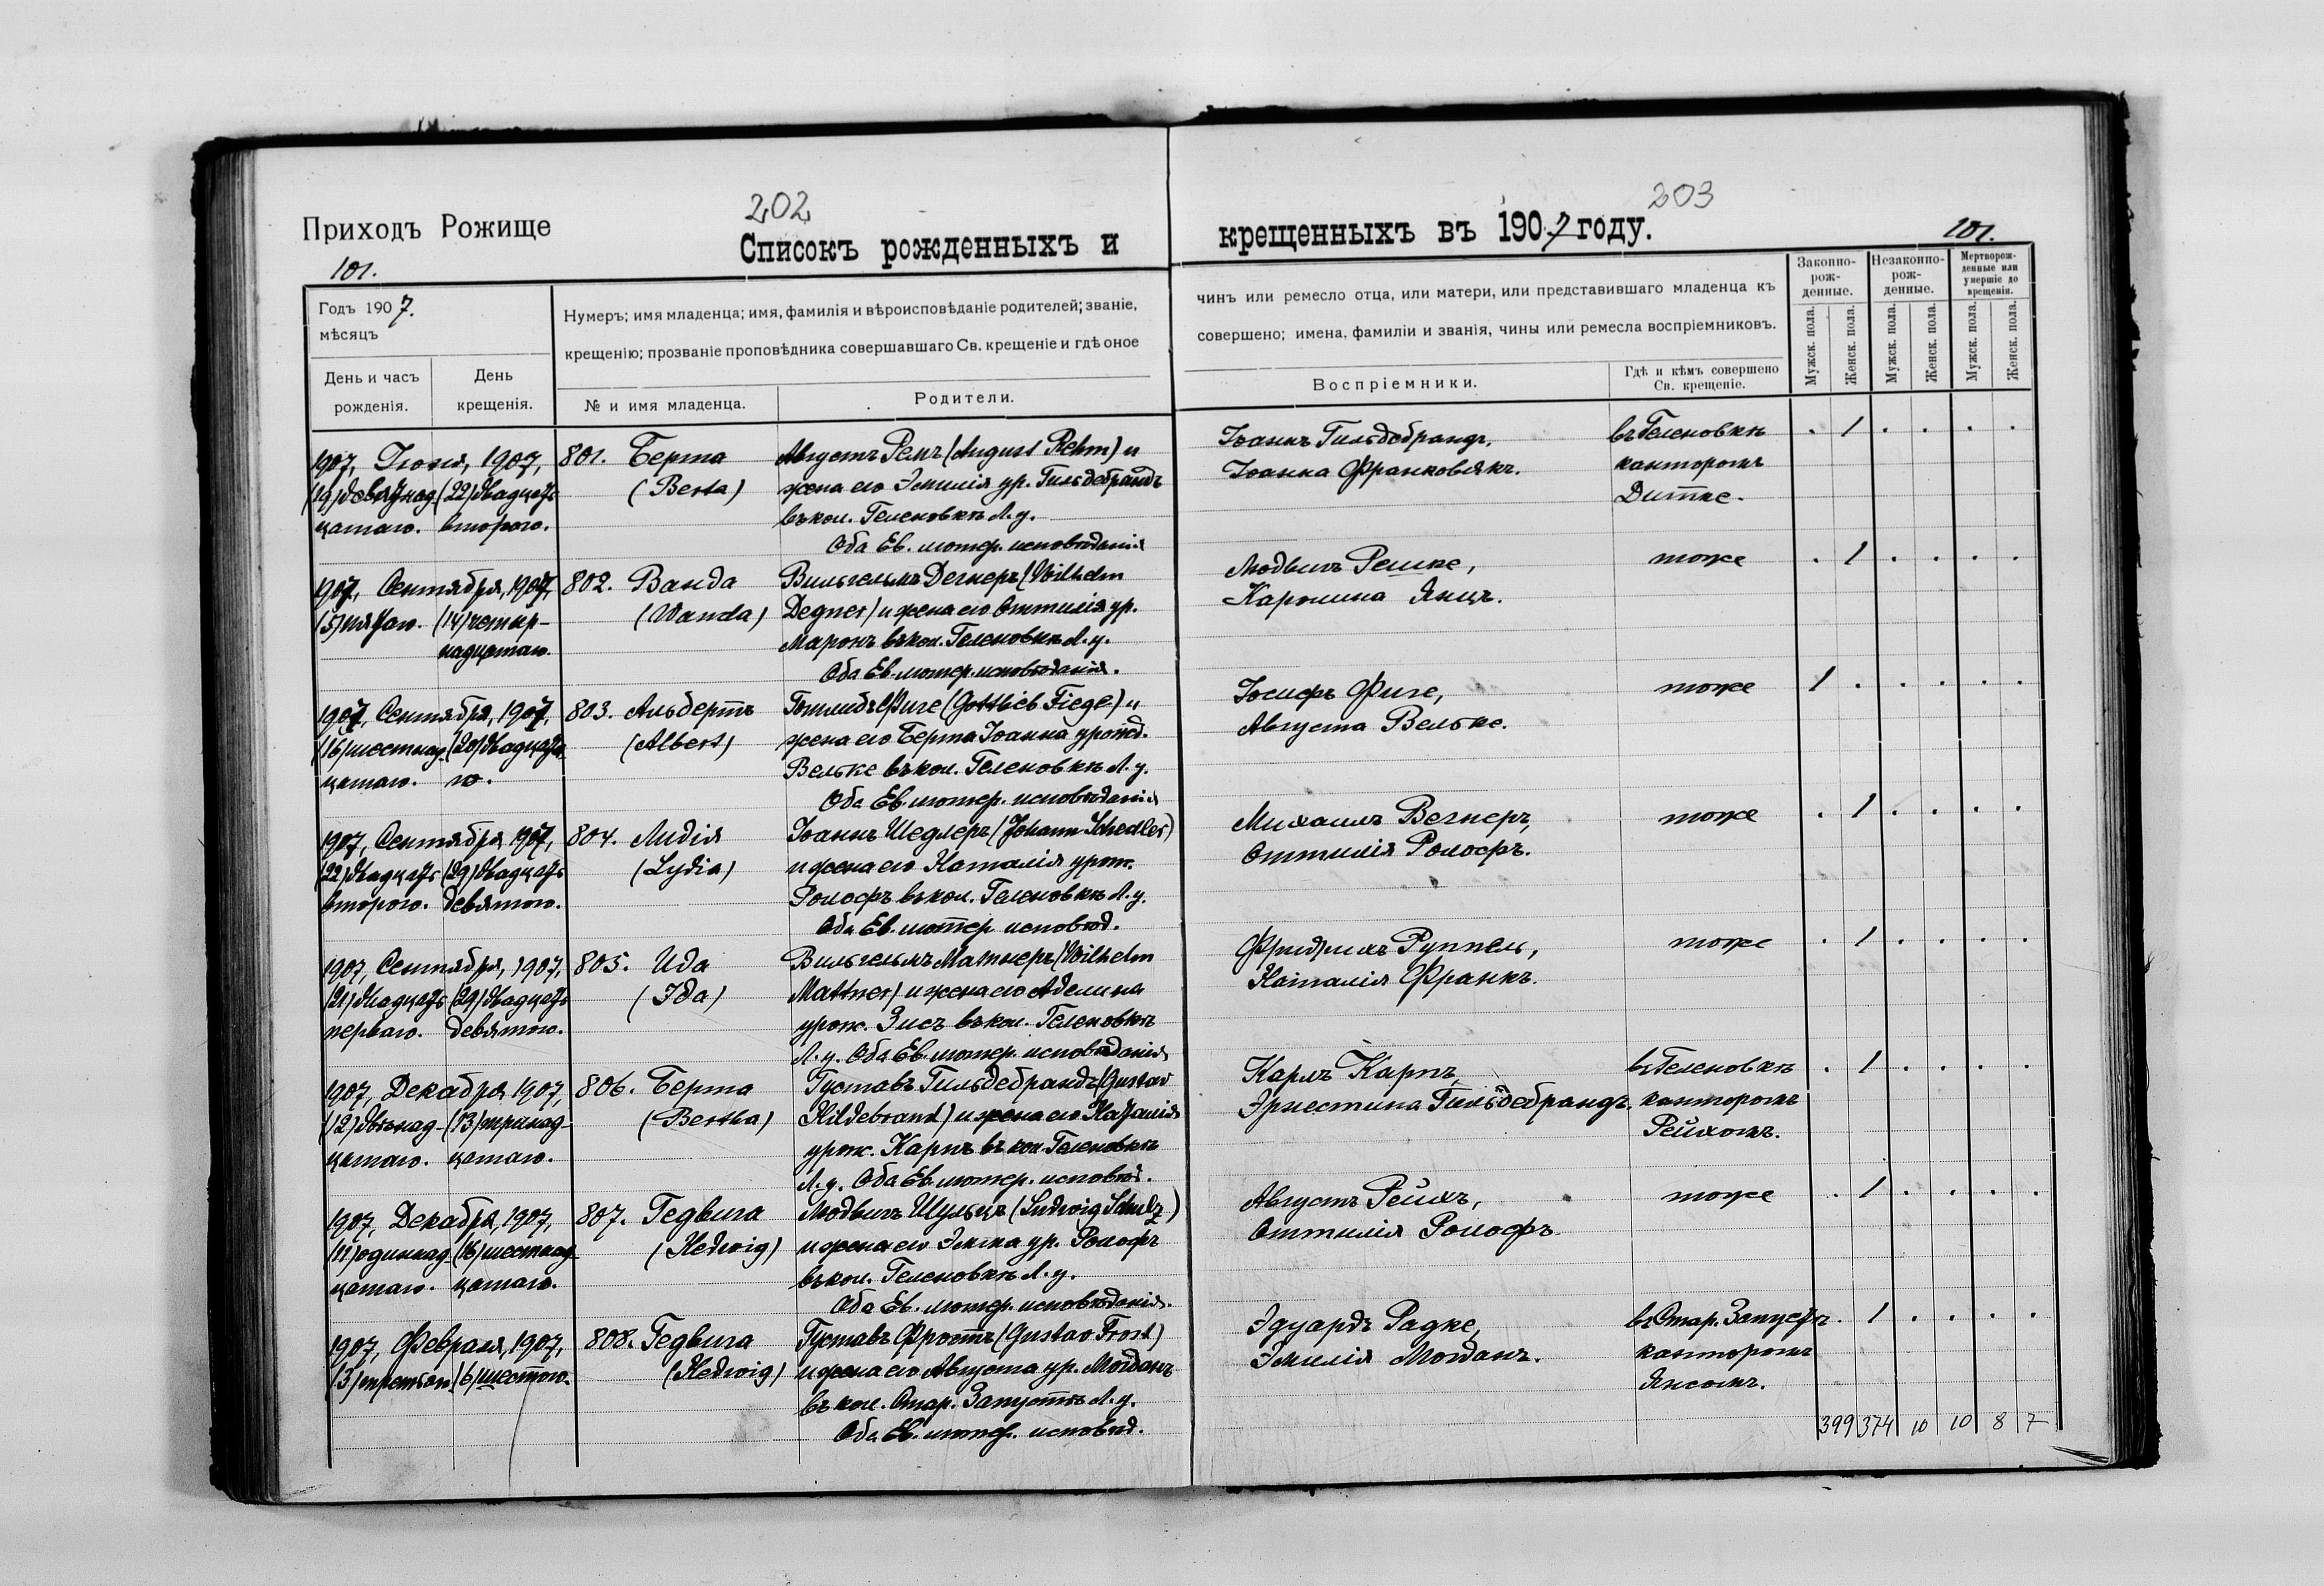 202
203
Приходъ Рожище
Списокъ рожденныхъ и
крещенныхъ въ 1907 году.
101.
101.
Годъ 1907.
мѣсяцъ
День и часъ
рожденія.
День
крещенія.
Нумеръ; имя младенца; имя, фамилія и вѣроисповѣданіе родителей; званіе,
крещенію; прозваніе проповѣдника совершавшаго Св. крещеніе и гдѣ оное
№ и имя младенца.
Родители.
чинъ или ремесло отца, или матери, или представившаго младенца къ
совершено; имена, фамиліи и званія, чины или ремесла воспріемниковъ.
Воспріемники.
Гдѣ и кѣмъ совершено
Св. крещеніе.
Законно-
рож-
денные.
Незаконно-
рож-
денные.
Мертворож-
денные или
умершіе до
крещенія.
Мужск. пола.
Женск. пола.
Мужск. пола.
Женск. пола.
Мужск. пола.
Женск. пола.
1907, Іюня, 1907,
(19) девятнад- (22) двадцать
цатаго. второго.
801. Берта
(Berta)
Августъ Ремъ (August Rehm) и
жена его Эмилія ур. Гильдебрандъ
въ кол. Геленовкѣ Л. у.
Оба Ев. лютер. исповѣданія
Іоаннъ Гильдебрандъ,
Іоанна Франковякъ.
въ Геленовкѣ
канторомъ
Дитке.
. 1 . . . .
1907, Сентября, 1907,
(5) пятаго. (14) четыр-
надцатаго.
802. Ванда
(Wanda)
Вильгельмъ Дегнеръ (Wilhelm
Degner) и жена его Оттилія ур.
Маронъ въ кол. Геленовкѣ Л. у.
Оба Ев. лютер. исповѣданія.
Людвигъ Решке,
Каролина Янцъ.
тоже
. 1 . . . .
1907, Сентября, 1907,
(16) шестнад- (20) двадцата-
цатаго. го.
803. Альбертъ
(Albert)
Готлибъ Фиге (Gottlieb Fiege) и
жена его Берта Іоанна урожд.
Вельке въ кол. Геленовкѣ Л. у.
Оба Ев. лютер. исповѣданія
Іосифъ Фиге,
Августа Вельке.
тоже
1 . . . . .
1907, Сентября 1907,
(22) двадцать (29) двадцать
второго. девятого.
804. Лидія
(Lydia)
Іоаннъ Шедлеръ (Johann Schedler)
и жена его Наталія урож.
Ролофъ въ кол. Геленовкѣ Л. у.
Оба Ев. лютер. исповѣд.
Михаилъ Вегнеръ,
Оттилія Ролофъ.
тоже
. 1 . . . .
1907, Сентября, 1907,
(21) двадцать (29) двадцать
перваго. девятого.
805. Ида
(Ida)
Вильгельмъ Матнеръ (Wilhelm
Mattner) и жена его Аделина
урож. Зисъ въ кол. Геленовкѣ
Л. у. Оба Ев. лютер. исповѣданія
Фридрихъ Руппель,
Наталія Франкъ.
тоже
. 1 . . . .
1907, Декабря 1907,
(12) двѣнад- (13) тринад-
цатаго. цатаго.
806. Берта
(Bertha)
Густавъ Гильдебрандъ (Gustav
Hildebrand) и жена его Наталія
урож. Карпъ въ кол. Геленовкѣ
Л. у. Оба Ев. лютер. исповѣд.
Карлъ Карпъ,
Эрнестина Гильдебрандъ.
въ Геленовкѣ
канторомъ
Рейхомъ.
. 1 . . . .
1907, Декабря, 1907,
(11) одиннад- (16) шестнад-
цатаго. цатаго.
807. Гедвига
(Hedwig)
Людвигъ Шульцъ (Ludwig Schulz)
и жена его Эмма ур. Ролофъ
въ кол. Геленовкѣ Л. у.
Оба Ев. лютер. исповѣданія.
Августъ Рейхъ,
Оттилія Ролофъ
тоже
. 1 . . . .
1907, Февраля, 1907,
(3) третьяго (6) шестого.
808. Гедвига
(Hedwig)
Густавъ Фростъ (Gustav Frost)
и жена его Августа ур. Мозданъ
въ кол. Стар. Запустѣ Л. у.
Оба Ев. лютер. исповѣд.
Эдуардъ Радке,
Эмилія Мозданъ.
въ Стар. Запустѣ
канторомъ
Янсомъ.
. 1 . . . .
399 374 10 10 8 7